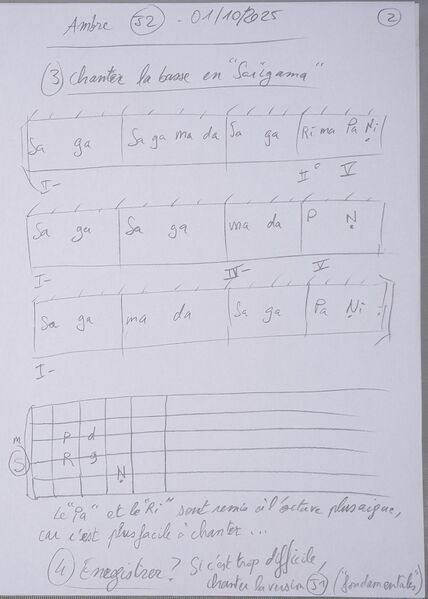 Ambre S2 - 01/10/2025 2
3 Chanter la basse en "Sarigama"
Sa ga Sa ga ma da Sa ga Ri ma Pa Ni
I- II° V
Sa ga Sa ga ma da P N
I- IV- V
Sa ga ma da Sa ga Pa Ni
I-
m P d
S R g
N
Le "Pa" et le "Ri" sont remis à l'octave plus aigue,
car c'est plus facile à chanter...
4 Enregistrer? Si c'est trop difficile,
chanter la version S1 ("fondamentales")